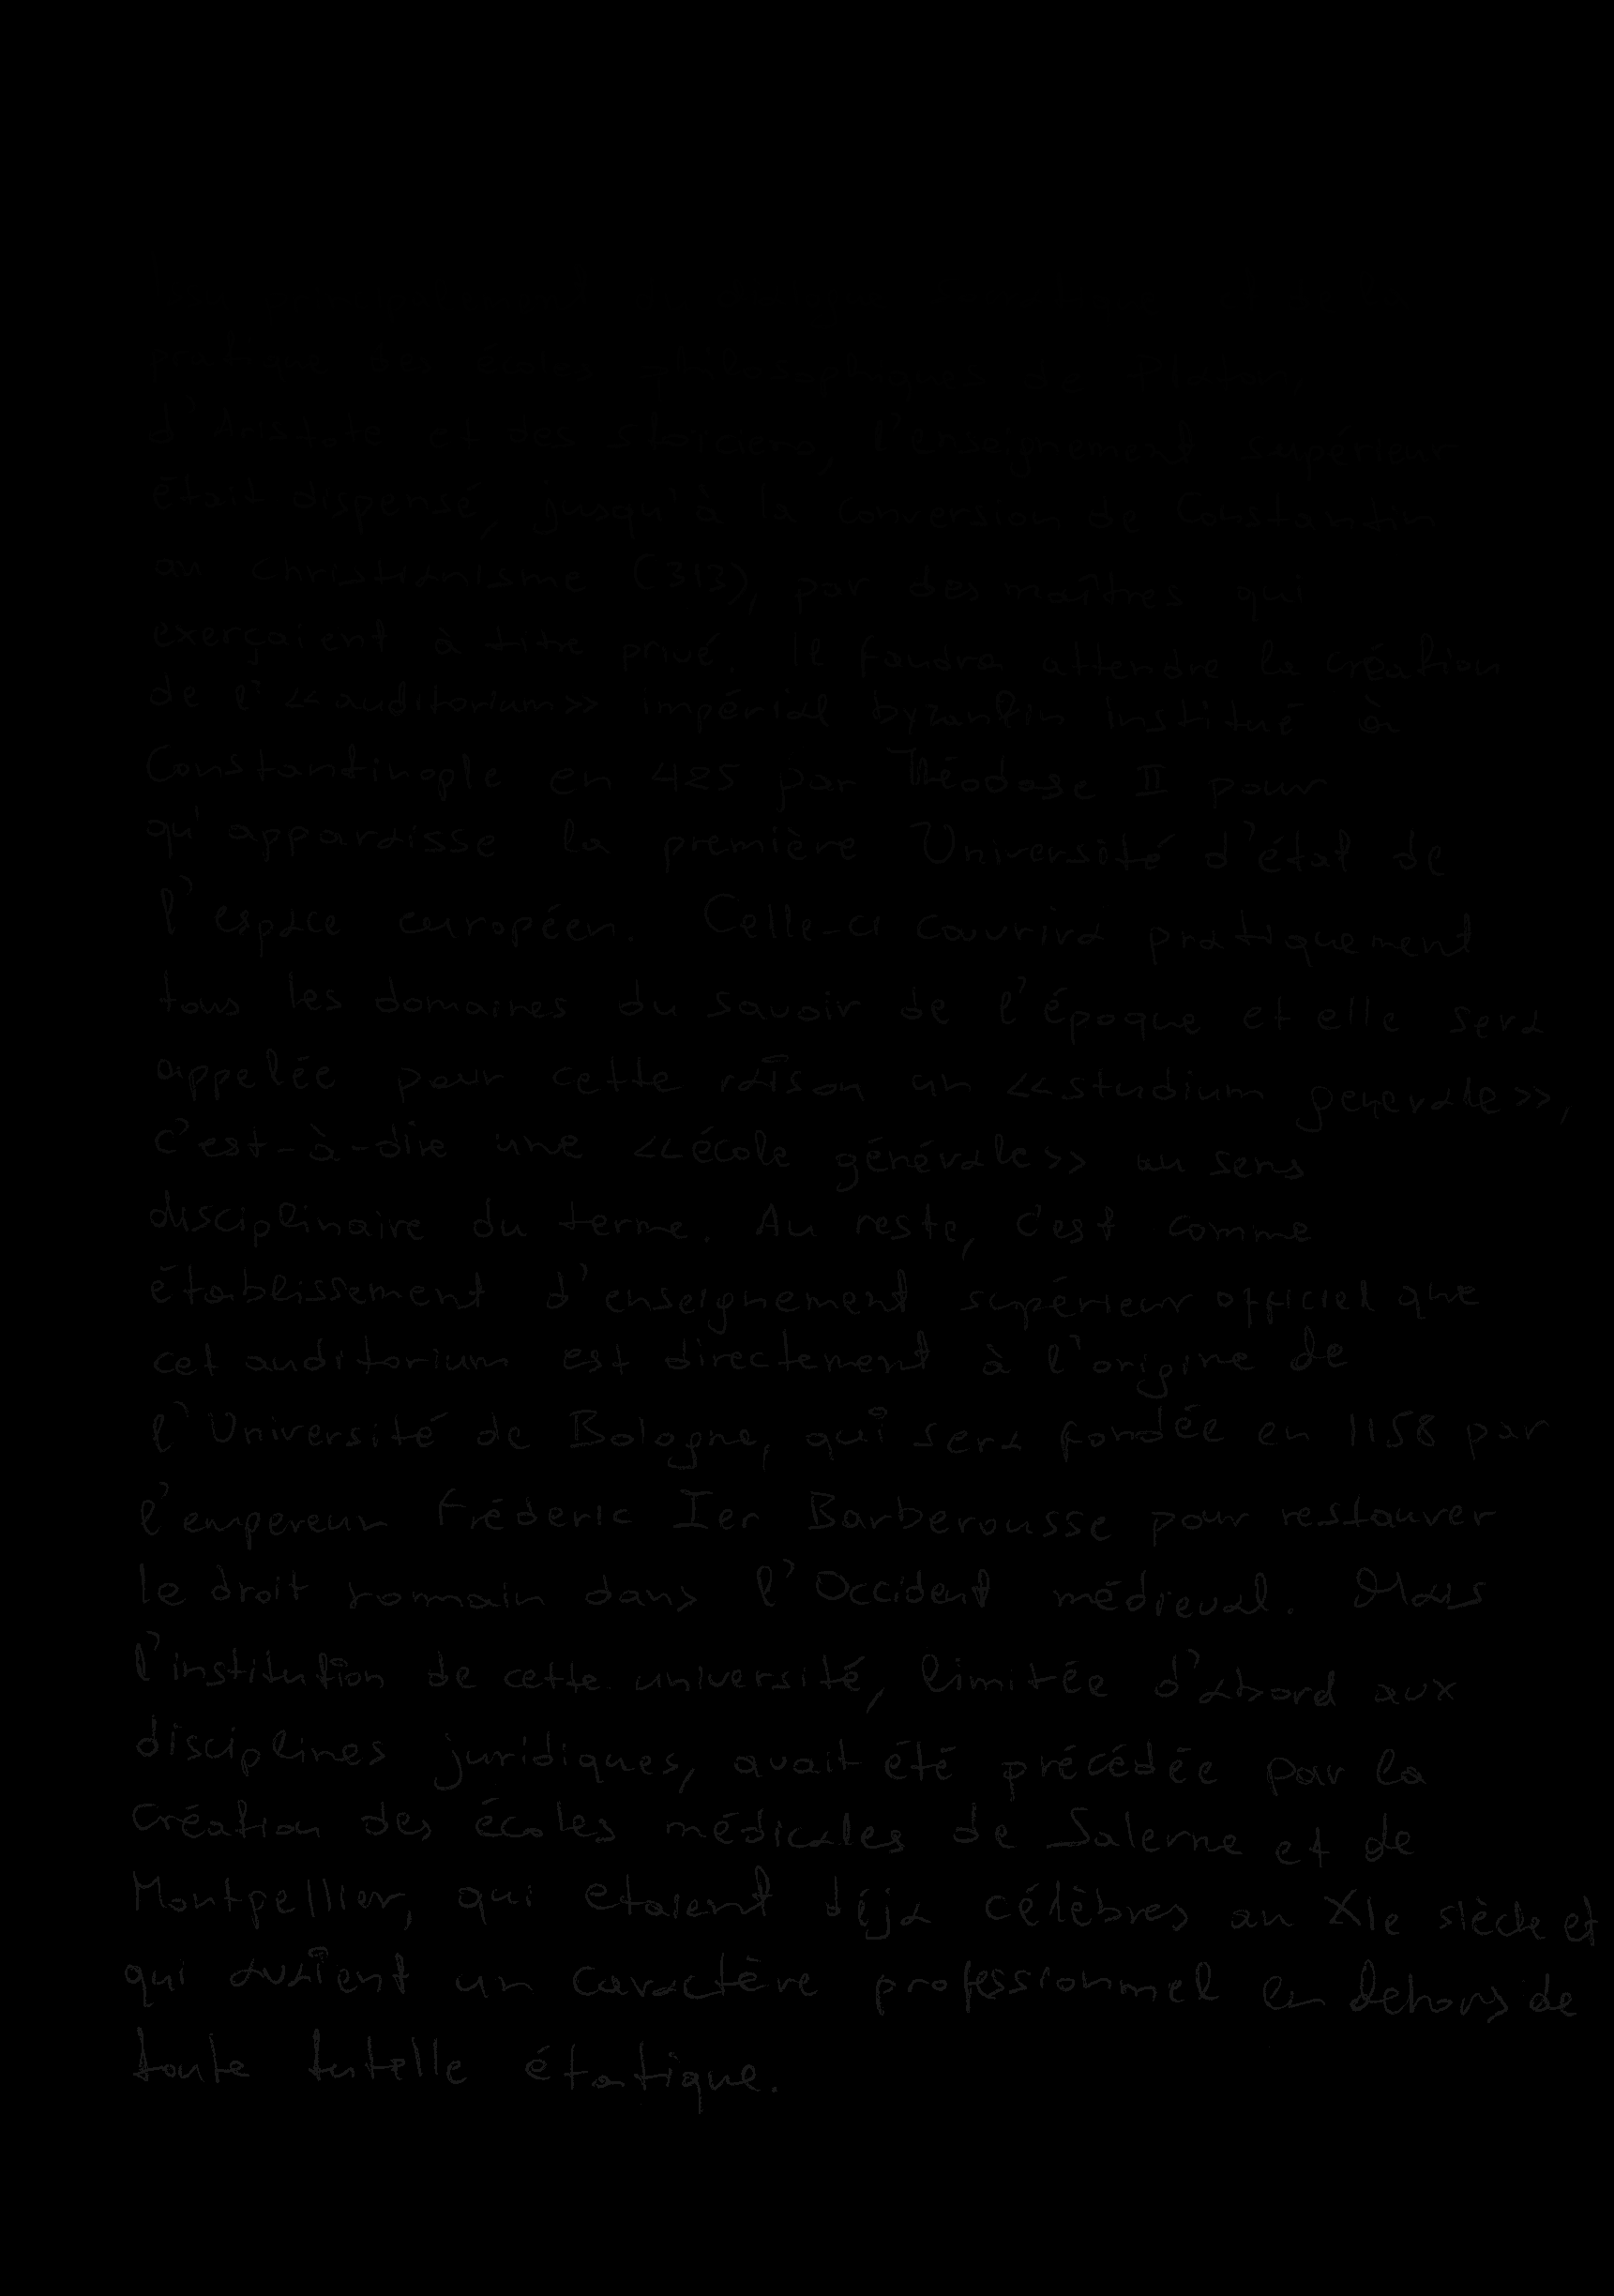 pratique des écoles philosophiques de Platon,
d'Aristote et des stoïciens, l'enseignement supérieur
était dispensé, jusqu'à la conversion de Constantin
au christianisme (313), par des maîtres qui
exerçaient à titre privé. Il faudra attendre la création
de l' <<auditorium>> impérial byzantin institué à
Constantinople en 425 par Théodose II pour
qu'apparaisse la première Université d'état de
l'espace européen. Celle-ci couvrira pratiquement
tous les domaines du savoir de l'époque et elle sera
appelée pour cette raison un <<studium generale>>,
c'est-à-dire une <<école générale>> au sens
disciplinaire du terme. Au reste, c'est comme
établissement d'enseignement supérieur officiel que
cet auditorium est directement à l'origine de
l'Université de Bologne, qui sera fondée en 1158 par
l'empereur Fréderic Ier Barberousse pour restaurer
le droit romain dans l'Occident médieval. Mais
l'institution de cette université, limitée d'abord aux
disciplines juridiques, avait été précédée par la
Création des écoles médicales de Salerne et de
Montpellier, qui etaient déja célèbres au XIe siècle et
qui avaient un caractère professionnel en dehors de
toute tutelle étatique.